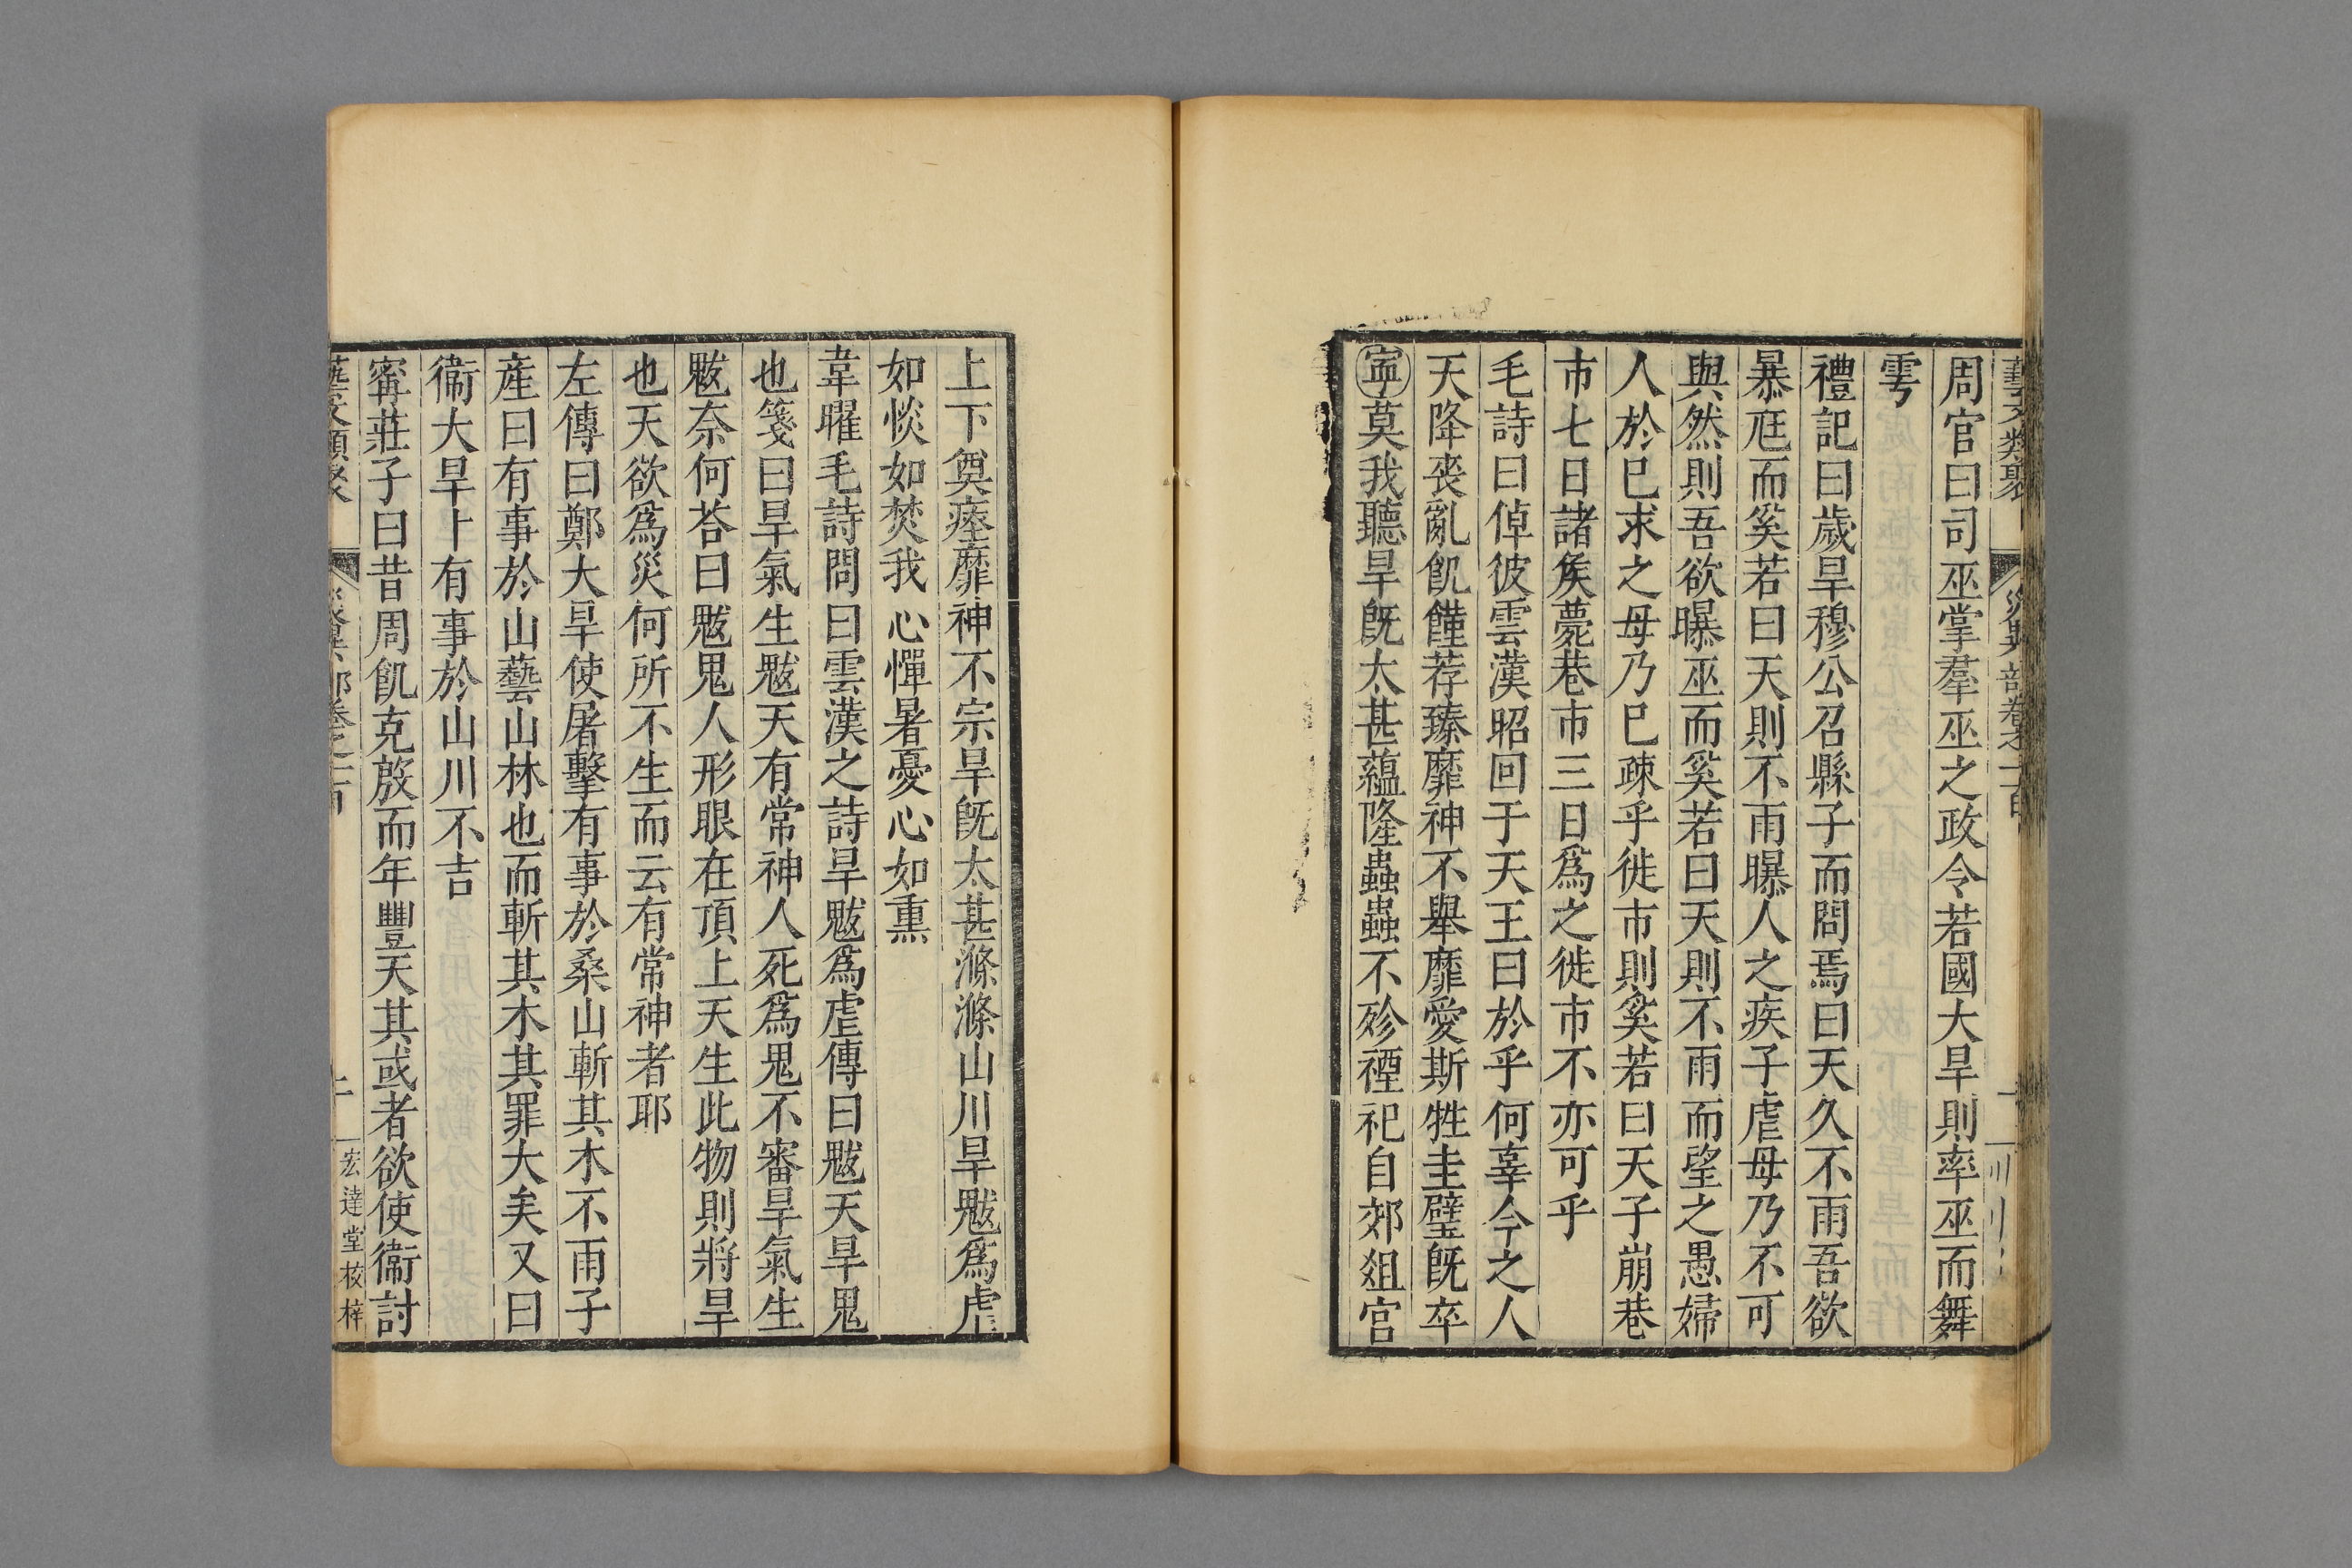 藝文類聚 災異部卷之一百
周官曰司巫掌羣巫之政令若國大旱則率巫而舞
雩
禮記曰歲旱穆公召縣子而問焉曰天久不雨吾欲
暴尫而奚若曰天則不雨曝人之疾子虐母乃不可
與然則吾欲曝巫而奚若曰天則不雨而望之愚婦
人於巳求之母乃巳疎乎徙市則奚若曰天子崩巷
市七日諸矦薨巷市三日爲之徙市不亦可乎
毛詩曰倬彼雲漢昭回于天王曰於乎何辜今之人
天降喪亂飢饉荐臻靡神不舉靡愛斯牲圭璧旣卒
寧莫我聽旱旣太甚蘊隆蟲蟲不殄禋祀自郊徂宮
上下奠瘞靡神不宗旱旣太甚滌滌山川旱魃爲虐
如惔如焚我心憚暑憂心如熏
韋曜毛詩問曰雲漢之詩旱魃爲虐傳曰魃天旱鬼
也箋曰旱氣生魃天有常神人死爲鬼不審旱氣生
魃奈何荅曰魃鬼人形眼在頂上天生此物則將旱
也天欲爲災何所不生而云有常神者耶
左傳曰鄭大旱使屠擊有事於桑山斬其木不雨子
產曰有事於山藝山林也而斬其木其罪大矣又曰
衞大旱卜有事於山川不吉
甯莊子曰昔周飢克殷而年豐天其或者欲使衞討
藝文類聚 災異部卷之一百 二 宏達堂校梓